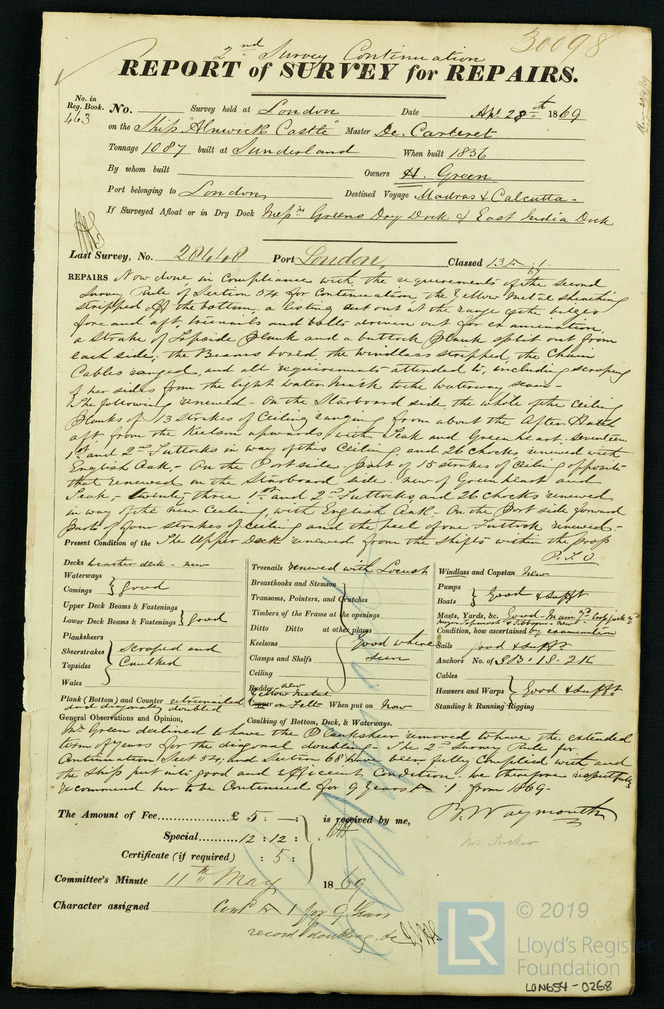 30098
2nd Survey Continuation
REPORT of SURVEY for REPAIRS.
No. in Reg. Book.
463
No. Survey held at London Date Apl 28th 1869
on the Ship "Alnwick Castle" Master De. Carteret
Tonnage 1087 built at Sunderland When built 1856
By whom built Owners H. Green
Port belonging to London Destined Voyage Madras & Calcutta
If Surveyed Afloat or in Dry Dock Messrs Greens Dry Dock & East India Dock
Last Survey, No. 28448 Port London Classed 13 A 1
REPAIRS Now done in compliance with the requirements of the second
Survey Rule of Section 54 for Continuation, the Yellow Metal sheathing
stripped off the bottom, a listing cut out at the range of the bilges
fore and aft, treenails and bolts driven out for examination,
a strake of Topside Plank and a buttock Plank split out from
each side, the Beams bored, the windlass stripped, the Chain
Cables ranged, and all requirements attended to, including scraping
of her sides from the light water mark to the waterway seam
The following renewed - On the Starboard side, the whole of the Ceiling
Planks of 13 strakes of Ceiling ranging from about the After Hatch
aft from the Keelson upwards with Teak and Greenheart. Seventeen
1st and 2nd Futtocks in way of this Ceiling, and 26 chocks renewed with
English Oak - On the Port side part of 15 strakes of Ceiling opposite
that renewed on the Starboard side. new of Greenheart and
Teak, - Twenty three 1st and 2nd Futtocks and 26 chocks renewed
in way of the new Ceiling, with English Oak - On the Port side forward
parts of four strakes of ceiling and the heel of one Futtock renewed. -
Present Condition of the The Upper Deck renewed from the shifts within the poop
P.T.O
Decks weather deck - new
Waterways
Comings } Good
Upper Deck Beams & Fastenings
Lower Deck Beams & Fastenings } Good
Planksheers
Sheerstrakes
Topsides
Wales
} Scraped and Caulked
Plank (Bottom) and Counter and diagonally doubled
Treenails renewed with Locust
Breasthooks and Stemson
Transoms, Pointers, and Crutches
Timbers of the Frame at the openings
Ditto Ditto at other places
Keelsons
Clamps and Shelfs
Ceiling
} Good where seen
Rudder new
Yellow Metal
Copper on Felt When put on Now
Caulking of Bottom, Deck, & Waterways.
Windlass and Capstan New
Pumps
Boats } Good & sufft
Masts, Yards, &c. Good - Main
Condition, how ascertained by examination
Sails good & sufft
Anchors No. of 3B. 1S. 2K
Cables
Hawsers and Warps } Good & sufft
Standing & Running Rigging
General Observations and Opinion,
Mr Green declined to have the Planksheer removed to have the extended
term of years for the diagonal doubling - The 2nd Survey Rule for
Continuation, Sect 54, and Section 68 have been fully complied with and
the ship put into good and efficient Condition. We therefore respectfully
recommend her to be Continued for 9 Years A 1 from 1869-
B. Waymouth
The Amount of Fee £ 5 : — : is received by me,
Special 12 : 12 :
Certificate (if required) : 5 :
Committee's Minute 11th May 1869
Character assigned Cont A 1 for 9 Years
record doubling &c
LR © 2019
Lloyd's Register
Foundation
LON654-0268